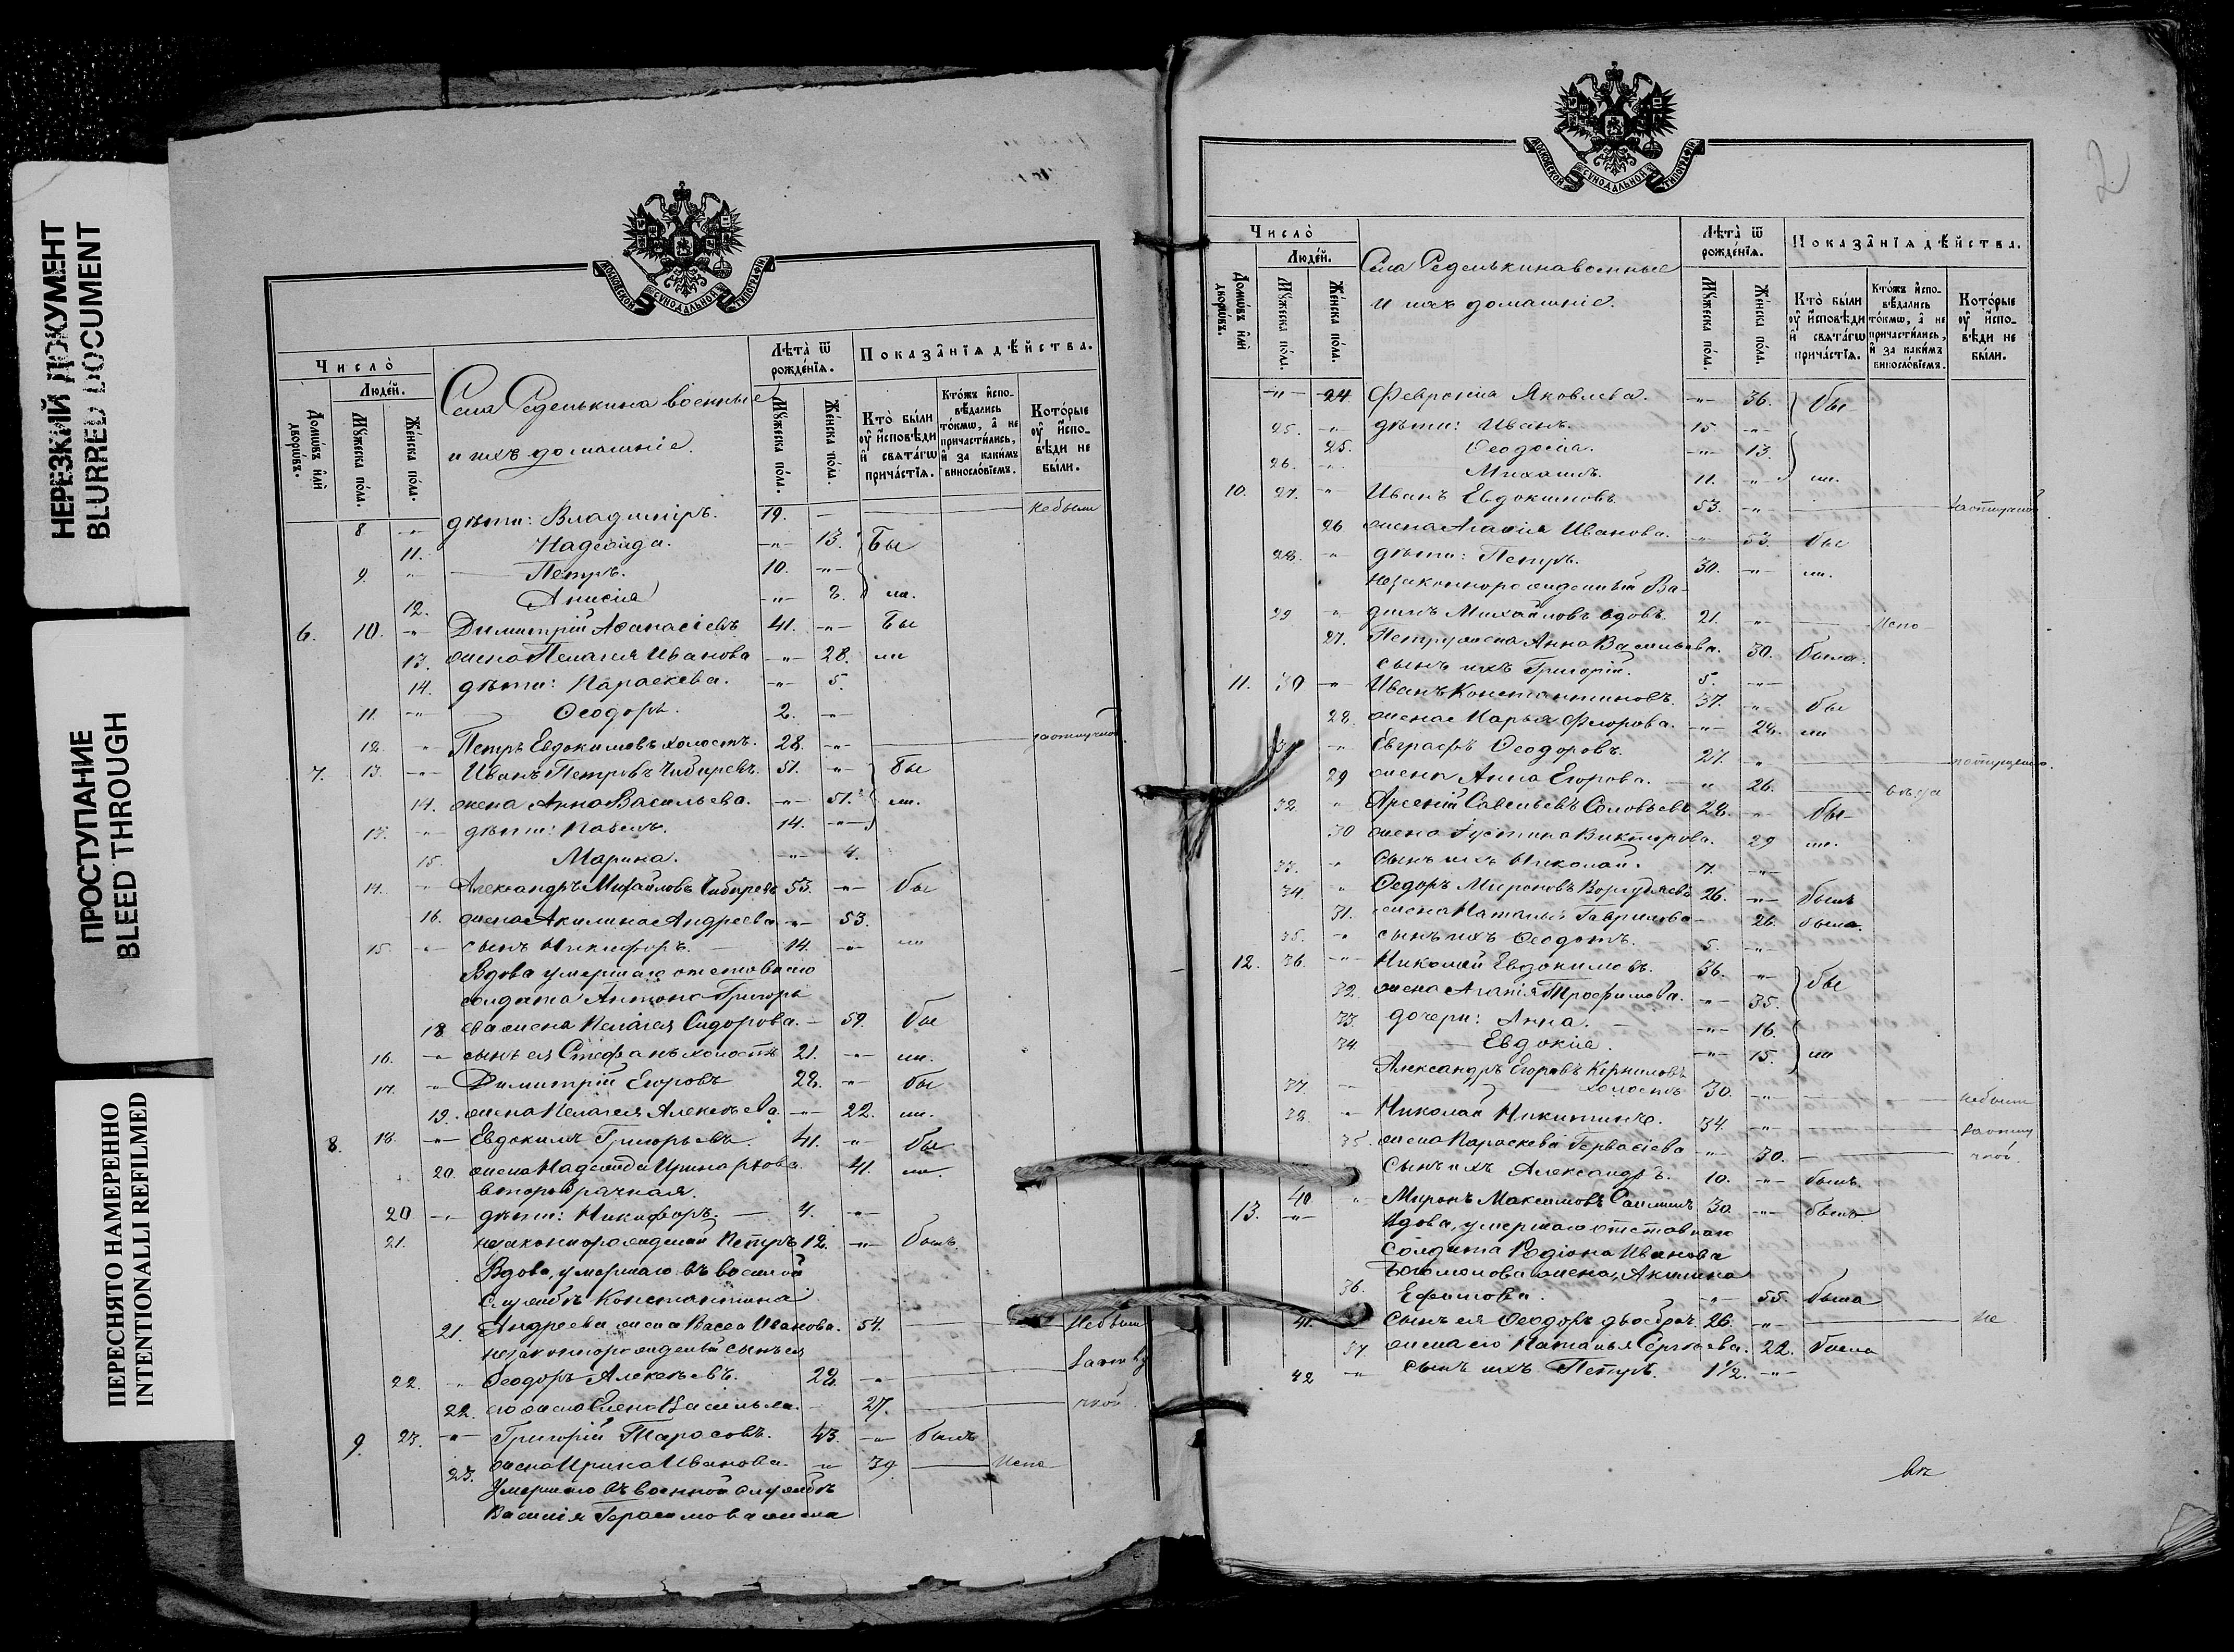 НЕРЕЗКИЙ ДОКУМЕНТ
BLURRED DOCUMENT
ПРОСТУПАНИЕ
BLEED THROUGH
ПЕРЕСНЯТО НАМЕРЕННО
INTENTIONALLI REFILMED
МОСКОВСКОЙ СѴНОДАЛЬНОЙ ТИПОГРАФІИ
Число̀
Люде́й.
Домѡ́въ и҆лѝ дворѡ́въ.
Мꙋ́жеска по́ла.
Же́нска по́ла.
Села Седенькина военные
и ихъ домашніе.
Лѣта̀ ѿ рожде́нїѧ.
Мꙋ́жеска по́ла.
Же́нска по́ла.
Показа̑нїѧ дѣ́йства.
Кто̀ бы́ли ᲂу҆ и҆сповѣ́ди и҆ свѧта́гѡ прича́стїѧ.
Кто́жъ и҆спо-вѣ́дались то́кмѡ, а҆ не причасти́лись, и҆ за каки́мъ винословїемъ.
Кото́рые ᲂу҆ и҆спо-вѣ́ди не бы́ли.
8 -"- дѣти: Владиміръ. 19. - небыли
11. Надежда. -"- 13. Бы
9. -"- Петръ. 10. -"-
12. Анисія -"- 8. ли.
6. 10. -"- Димитрій Аѳанасіевъ 41. -"- Бы
13. жена Пелагея Иванова -"- 28. ли
14. дѣти: Параскева. -"- 5.
11. -"- Ѳеодоръ. 2. -"-
12. -"- Петръ Евдокимовъ холостъ. 28. -"- заотлучкой
7. 13. -"- Иванъ Петровъ Чибиревъ. 51. -"- Бы
14. жена Анна Васильева. -"- 51. ли.
13. -"- дѣти: Павелъ. 14. -"-
15. Марина. -"- 4.
14. -"- Александръ Михайловъ Чибиревъ 53. -"- бы
16. жена Акилина Андреева -"- 53.
15. -"- сынъ Никифоръ. 14. -"- ли
Вдова умершаго отставнаго
солдата Антона Григорь
18 ева жена Пелагея Сидорова. - 59. бы
16. -"- сынъ ея Стефанъ холостъ 21. -"- ли.
17. -"- Димитрій Егоровъ 22. -"- бы
19. жена Пелагея Алексѣева. -"- 22. ли.
8. 18. -"- Евдокимъ Григорьевъ. 41. -"- бы
20. жена Надежда 41. ли
второбрачная.
20 -"- дѣти: Никифоръ. 4. -"-
21. незаконнорожденный Петръ 12. -"- былъ.
Вдова, умершаго въ военной
службѣ Константина
21. Андреева жена Васса Иванова. 54. Небыли
незаконнорожденный сынъ ея
22. -"- Ѳеодоръ Алексѣевъ. 22 -"-
22. его жена Елена 27. чкой.
9. 23. -"- Григорій Тарасовъ. 43. -"- былъ
23. жена Ирина Иванова. -"- 39. Испо
Умершаго въ военной службѣ
Василія Герасимова жена
2
МОСКОВСКОЙ СѴНОДАЛЬНОЙ ТИПОГРАФІИ
Число̀
Люде́й.
Домѡ́въ и҆лѝ дворѡ́въ.
Мꙋ́жеска по́ла.
Же́нска по́ла.
Села Седенькина военные
и ихъ домашніе.
Лѣта̀ ѿ рожде́нїѧ.
Мꙋ́жеска по́ла.
Же́нска по́ла.
Показа̑нїѧ дѣ́йства.
Кто̀ бы́ли ᲂу҆ и҆сповѣ́ди и҆ свѧта́гѡ прича́стїѧ.
Кто́жъ и҆спо-вѣ́дались то́кмѡ, а҆ не причасти́лись, и҆ за каки́мъ винословїемъ.
Кото́рые ᲂу҆ и҆спо-вѣ́ди не бы́ли.
-"- 24. Февронія Яковлева. -"- 36. бы-
25. -"- дѣти: Иванъ. 15 -"-
25. Ѳеодосія. -"- 13.
26. -"- Михаилъ. 11. -"- ли.
10. 27. -"- Иванъ Евдокимовъ. 53. -"- заотлучкой
26 жена Агаѳія Иванова. -"- 53. бы
28. -"- дѣти: Петръ. 30. -"- ли.
незаконнорожденный Ва-
29 -"- Михайловъ вдовъ. 21. -"- Испо
27. Петру жена Анна Васильева. 30. была.
сынъ ихъ Григорій. 5. -"-
11. 30 -"- Иванъ Константиновъ. 37. -"- бы
28. жена Марья Флорова. -"- 24. ли
31. -"- Евграфъ Ѳеодоровъ. 27. -"-
29 жена Анна Егорова. -"- 26.
32. -"- Арсеній Савельевъ Соловьевъ 28. -"- бы-
30 жена Іустина Викторова. 29 ли.
33. -"- Сынъ ихъ Николай.
34. -"- Ѳедоръ Мироновъ 26. -"- былъ
31. жена Наталья Гаврилова - 26. была.
35. -"- сынъ ихъ Ѳеодотъ. 5. -"-
12. 36. -"- Николай Евдокимовъ. 36. -"- бы
32. жена Агапія Трофимова. -"- 35.
33. дочери: Анна. -"- 16.
34 Евдокія. -"- 15. ли
Александръ Егоровъ Корниловъ
37. холостъ 30. -"- небыли
38. -"- Николай Никитинъ. 34. -"- заотлу
35. жена Параскева Гервасіева -"- 30. чкой.
сынъ ихъ Александръ. 10. -"- былъ.
40. -"- Миронъ Максимовъ 30. -"- былъ.
13. -"- Вдова, умершаго отставнаго
Солдата Родіона Иванова
Богомолова жена, Акилина
36. Ефимова. -"- 55. была
41. Сынъ ея Ѳеодоръ двоебрач. 26. -"- Не
37. жена его Наталья Сергѣева. 22. была
42 -"- сынъ ихъ Петръ. 1½. -"-